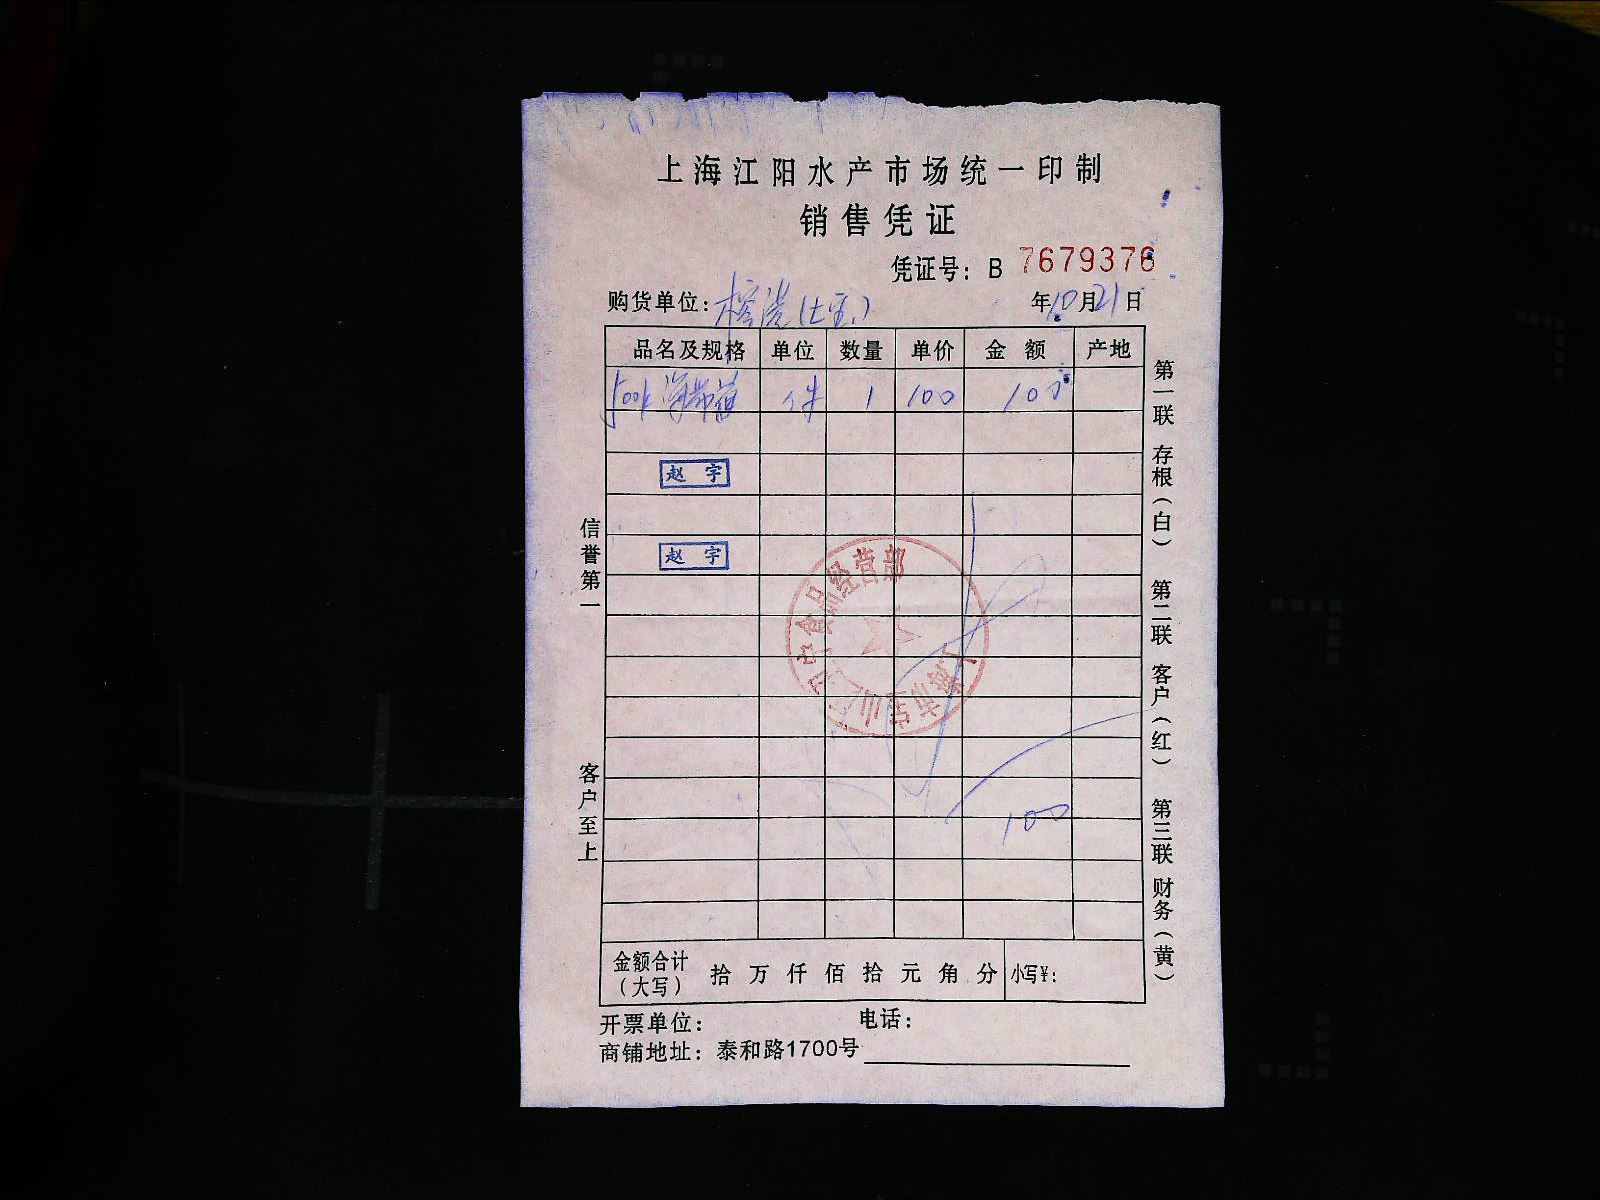 上海江阳水产市场统一印制
销售凭证
凭证号：B 7679376
购货单位：
年10月21日
品名及规格 单位 数量 单价 金额 产地
件 1 100 100
赵宇
赵宇
食品经营部
上海市宝山区
100
金额合计（大写） 拾 万 仟 佰 拾 元 角 分 小写¥：
开票单位： 电话：
商铺地址：泰和路1700号
信誉第一
客户至上
第一联 存根（白） 第二联 客户（红） 第三联 财务（黄）